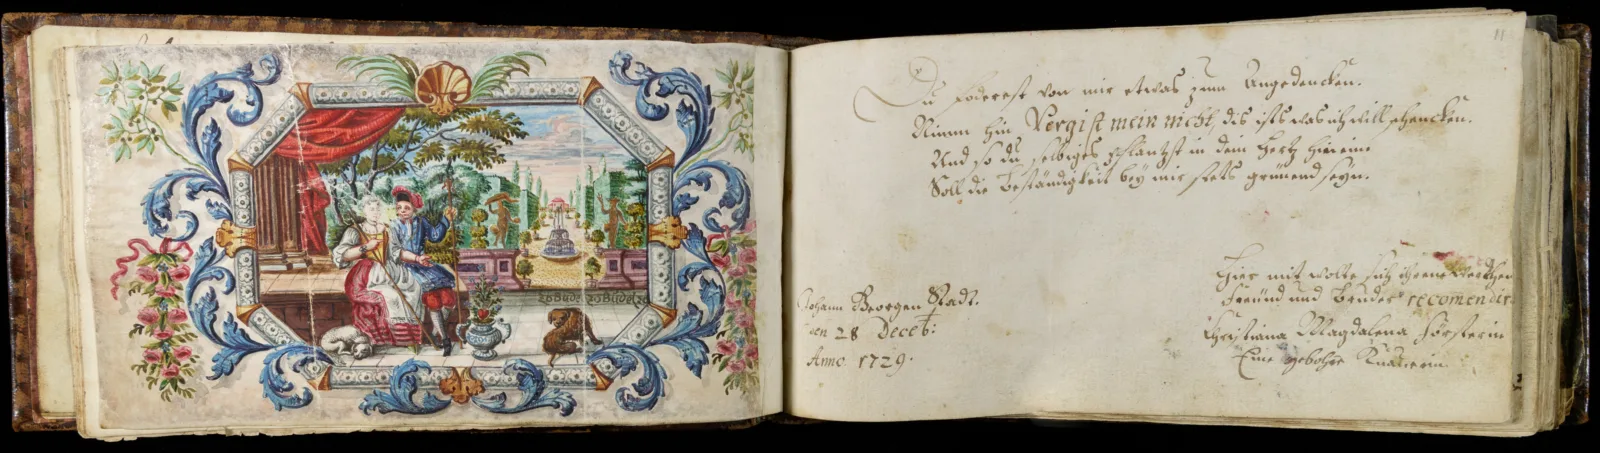 11
Du foderest von mir etwas zum Angedencken.
Nimm hin Vergiß mein nicht, dis ists was ich will schencken.
Und so du selbiges pflantzst in dein Hertz hinein
Soll die Beständigkeit bey mir stets grünend seyn.
Johann Georgen Stadt.
den 28 Deceb:
Anno 1729.
Hier mit wolte sich ihren
Freünd und Bruder recomendir
Christiana Magdalena Försterin
Eine gebohrne